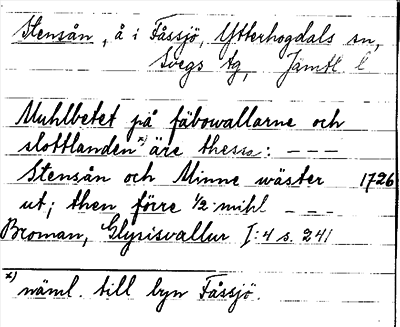 Stensån, å i Fåssjö, Ytterhogdals sn,
Svegs tg, Jämtl. l
Muhlbetet på fäbowallarne och
slottlanden x) äre thessa: – – –
Stensån och Minne wäster 1726
ut; then förre 1/2 mihl – – –
Broman, Glysisvallur I:4 s. 241
x) näml. till byn Fåssjö.